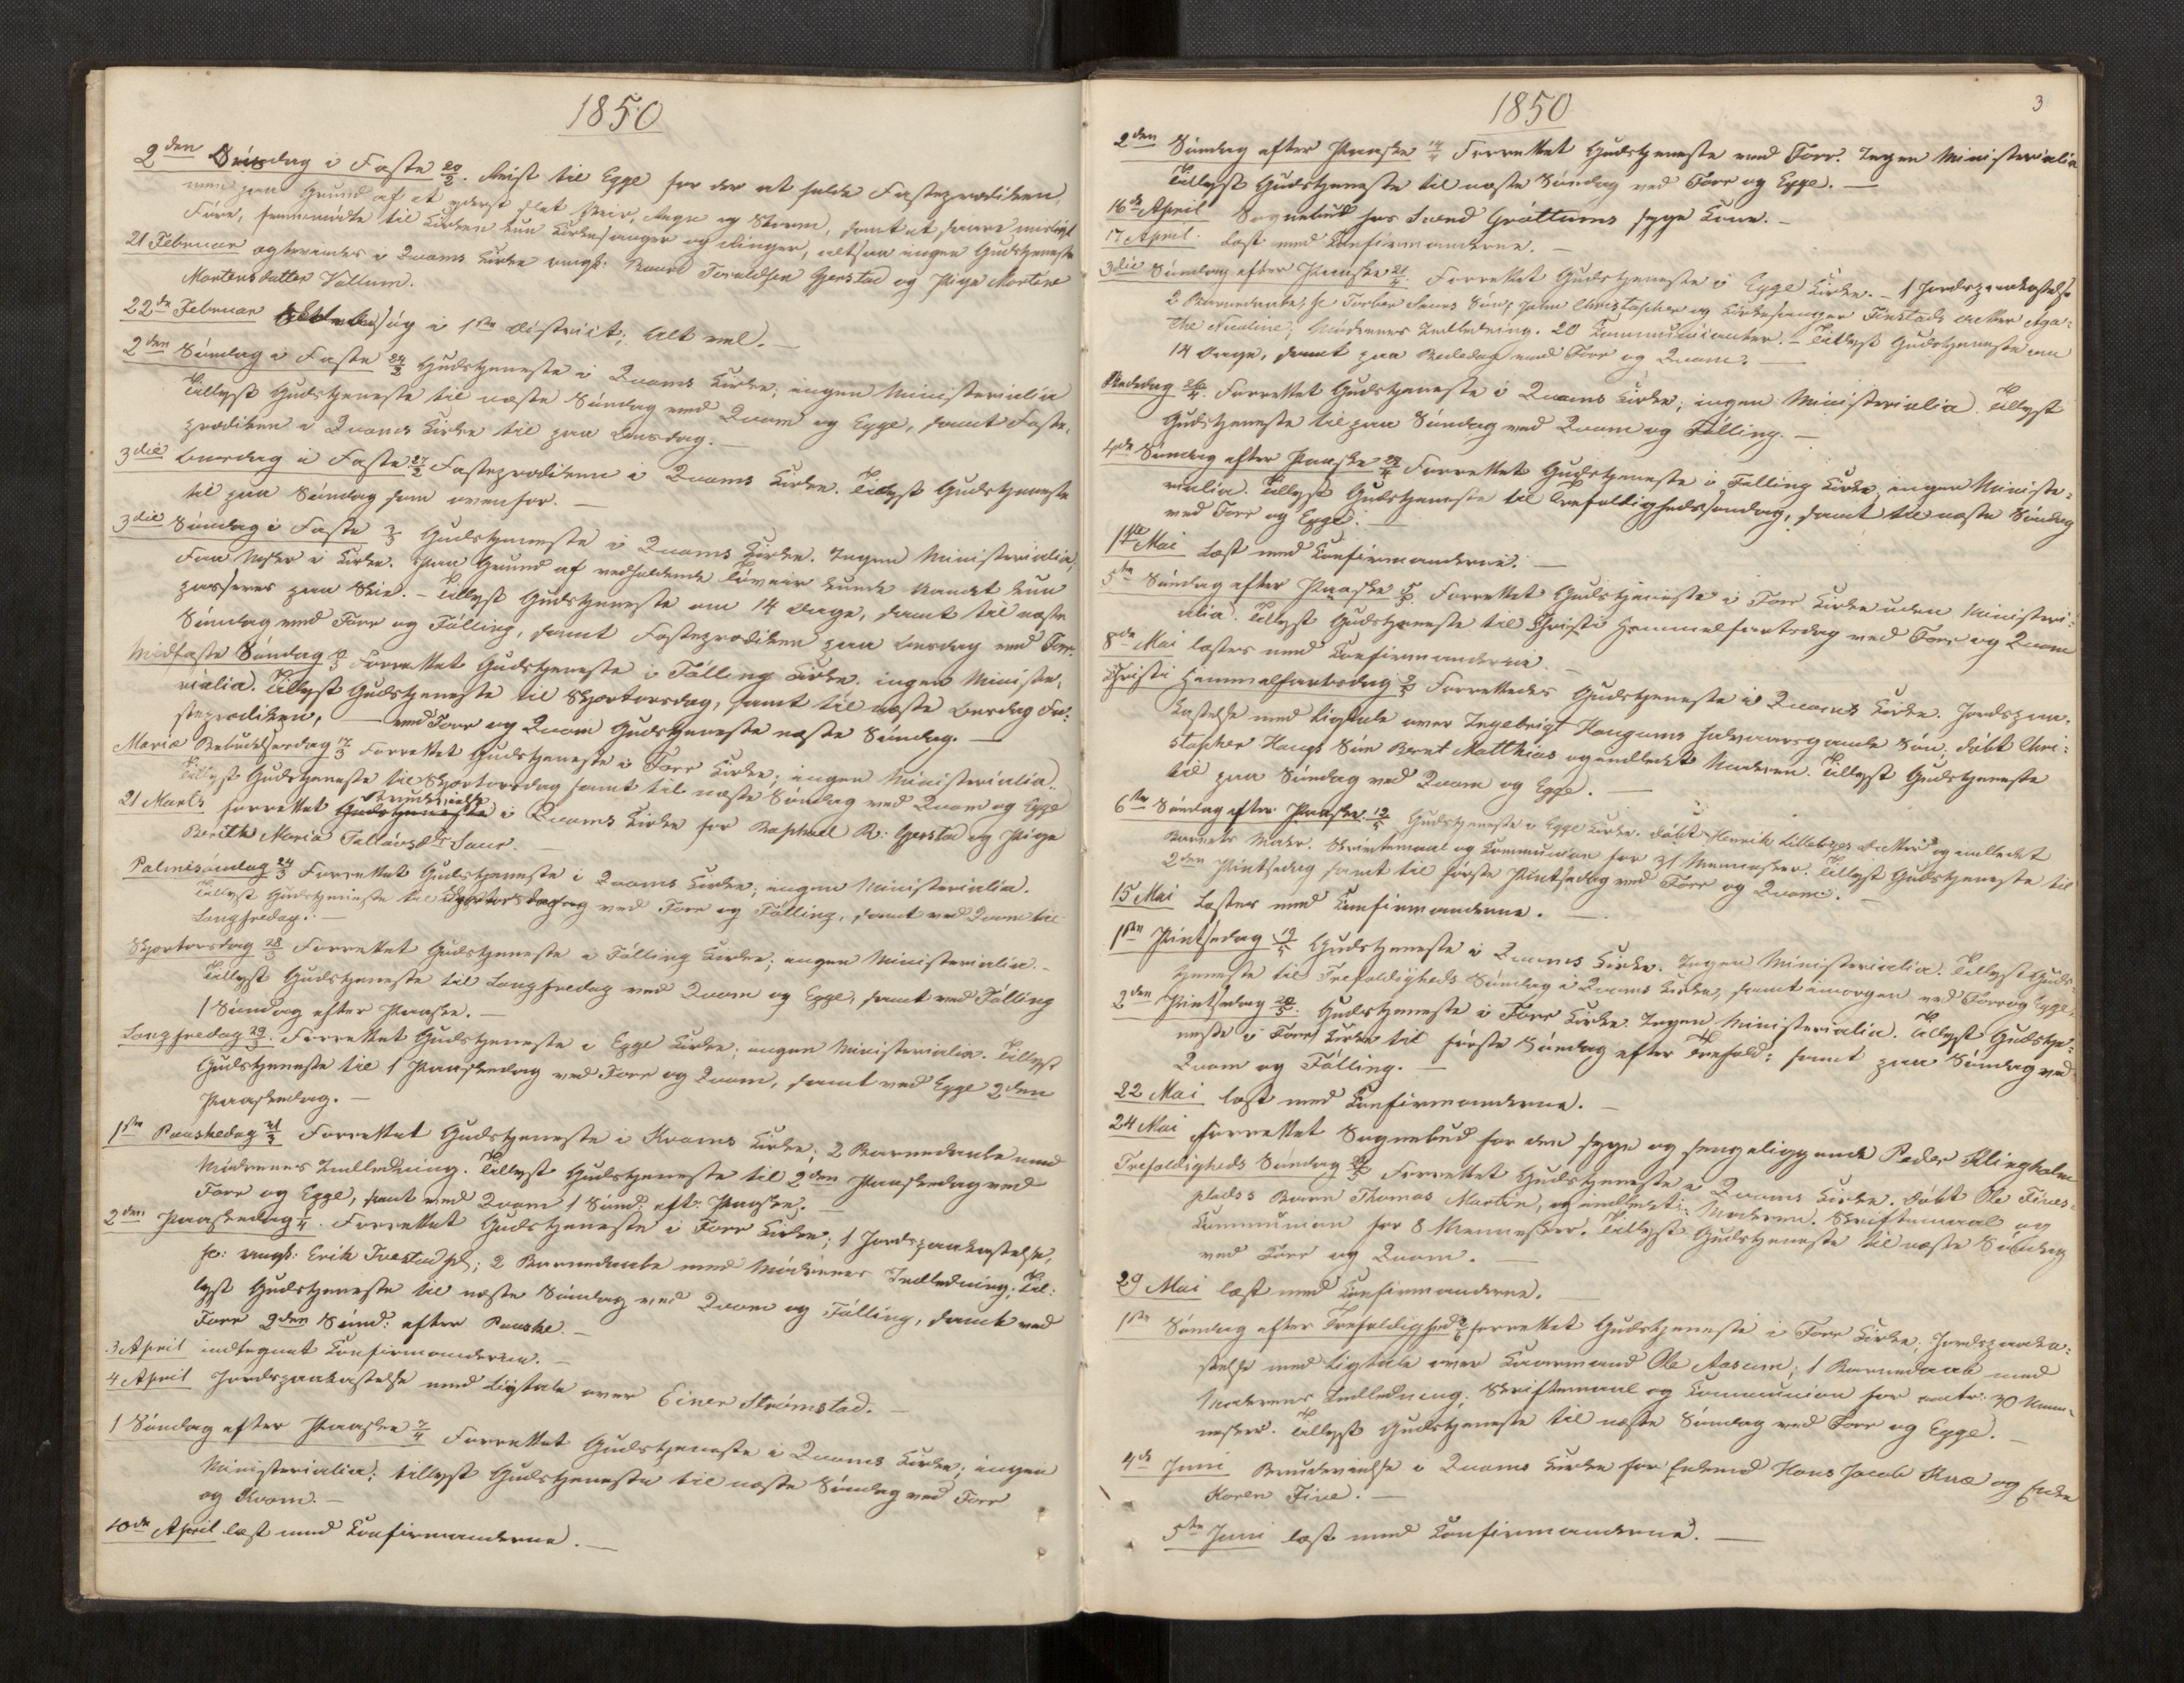 1850
2den Søndag i Faste 20/2. Reist til Egge for der at holde Fasteprædiken,
men paa Grund af et yderst slet Veir, Regn og Storm, samt et saare misligt
Føre, fremmødte til Kirken kun Kirkesanger og Ringer, altsaa ingen Gudstjeneste
21 Februar ægteviedes i Qvams Kirke ungk: Toraldsen Gjerstad og Pige Martine
Martensdatter Vallum.
22de Februar i 1ste District; Alt vel. —
2den Søndag i Faste 24/2 Gudstjeneste i Qvams Kirke; ingen Ministerialia
Tillyst Gudstjeneste til næste Søndag ved Qvam og Egge, samt Faste-
prædiken i Qvams Kirke til paa Onsdag. —
3die Onsdag i Faste 27/2 Fasteprædiken i Qvams Kirke. Tillyst Gudstjeneste
til paa Søndag som ovenfor. —
3die Søndag i Faste 3/3 Gudstjeneste i Qvams Kirke. Ingen Ministerialia,
Faa Folk i Kirke. Paa Grund af vedholdende Tøveir kunde Vandet kun
passeres paa Skie. — Tillyst Gudstjeneste om 14 Dage, samt til næste
Søndag ved For og Følling, samt Fasteprædiken paa Onsdag ved For.
Midfaste Søndag 10/3 Forrettet Gudstjeneste i Følling Kirke. ingen Ministe-
rialia. Tillyst Gudstjeneste til Skjortorsdag, samt til næste Onsdag Fa-
steprædiken, — ved For og Qvam Gudstjeneste næste Søndag. —
Mariæ Bebudelsesdag 17/3 Forrettet Gudstjeneste i For Kirke; ingen Ministerialia..
Tillyst Gudstjeneste til Skjortorsdag samt til næste Søndag ved Qvam og Egge
21 Marts forrettet Brudevielse i Qvams Kirke for Raphael R: Gjerstad og Pige
Berith Maria Talløusdtr
Palmesøndag 24/3 Forrettet Gudstjeneste i Qvams Kirke; ingen Ministerialia.
Tillyst Gudstjeneste til Skjortorsdag ved For og Følling, samt ved Qvam til
Langfredag. —
Skjortorsdag 28/3 Forrettet Gudstjeneste i Følling Kirke; ingen Ministerialia. —
Tillyst Gudstjeneste til Langfredag ved Qvam og Egge, samt ved Følling
1 Søndag efter Paaske. —
Langfredag 29/3. Forrettet Gudstjeneste i Egge Kirke; ingen Ministerialia. Tillyst
Gudstjeneste til 1 Paaskedag ved For og Qvam, samt ved Egge 2den
Paaskedag. —
1ste Paaskedag 31/3 Forrettet Gudstjeneste i Kvams Kirke; 2 Barnedaabe med
Mødrenes Indledning. Tillyst Gudstjeneste til 2den Paaskedag ved
For og Egge, samt ved Qvam 1 Sønd: eft: Paaske. —
2den Paaskedag 1/4. Forrettet Gudstjeneste i For Kirke; 1 Jordspaakastelse,
sc: ungk: Erik Tvestad pl; 2 Barnedaabe med Mødrenes Indledning; Til-
lyst Gudstjeneste til næste Søndag ved Qvam og Følling, samt ved
For 2den Sønd: efter Paaske. —
3 April indtegnet Confirmanderne. —
4 April Jordspaakastelse med Ligtale over Einer Strømstad. —
1 Søndag efter Paaske 7/4 Forrettet Gudstjeneste i Qvams Kirke; ingen
Ministerialia; tillyst Gudstjeneste til næste Søndag ved For
og Kvam. —
10de April læst med Confirmanderne. —
3
1850
2den Søndag efter Paaske 14/4 Forrettet Gudstjeneste ved For. Ingen Ministerialia
Tillyst Gudstjeneste til næste Søndag ved For og Egge. —
16de April Sognebud hos Svend Grøttums syge Kone. —
17 April. Læst med Confirmanderne. —
3die Søndag efter Paaske 21/4. Forrettet Gudstjeneste i Egge Kirke. — 1 Jordspaakastelse
2 Barnedaabe, sc Søn, John Christopher og Kirkesanger Finstads Datter Aga-
the Nicoline; Mødrenes Indledning. 20 Communicanter. — Tillyst Gudstjeneste om
14 Dage, samt paa Bededag ved For og Qvam. —
Bededag 26/4. Forrettet Gudstjeneste i Qvams Kirke; ingen Ministerialia. Tillyst
Gudstjeneste til paa Søndag ved Qvam og Følling. —
4de Søndag efter Paaske 28/4 Forrettet Gudstjeneste i Følling Kirke, ingen Ministe-
rialia. Tillyst Gudstjeneste til Trefoldighedssøndag, samt til næste Søndag
ved For og Egge. —
1ste Mai Læst med Confirmanderne. —
5te Søndag efter Paaske 5/5. Forrettet Gudstjeneste i For Kirke uden Ministeri-
alia. Tillyst Gudstjeneste til Christi Himmelfartsdag ved For og Qvam
8de Mai læstes med Confirmanderne. —
Christi Himmelfartsdag 9/5 Forrettedes Gudstjeneste i Qvams Kirke. Jordspaa-
kastelse med Ligtale over Ingebrigt Haugums halvaarsgamle Søn; døbt Chri-
stopher Haugs Søn Bernt Matthias og indledet Moderen. Tillyst Gudstjeneste
til paa Søndag ved Qvam og Egge. —
6te Søndag efter Paaske 12/5 Gudstjeneste i Egge Kirke. døbt Henrik Datter og indledet
Barnets Moder. Skriftemaal og Communion for 31 Mennesker. Tillyst Gudstjeneste til
2den Pintsedag samt til første Pintsedag ved For og Qvam. —
15 Mai Læstes med Confirmanderne. —
1ste Pintsedag 19/5 Gudstjeneste i Qvams Kirke. Ingen Ministerialia. Tillyst Guds-
tjeneste til Trefoldigheds Søndag i Qvams Kirke, samt imorgen ved For og Egge.
2den Pintsedag 20/5. Gudstjeneste i For Kirke. Ingen Ministerialia. Tillyst Gudstje-
neste i For Kirke til første Søndag efter Trefold: samt paa Søndag ved
Qvam og Følling. —
22 Mai læst med Confirmanderne. —
24 Mai Forrettet Sognebud for den syge og sengeliggende Peder Klingholm
Trefoldigheds Søndag 26/5 Forrettet Gudstjeneste i Qvams Kirke. døbt Ole Fines-
pladss Barn Thomas Martin, og indledet Moderen. Skriftemaal og
Communion for 8 Mennesker. Tillyst Gudstjeneste til næste Søndag
ved For og Qvam. —
29 Mai læst med Confirmanderne. —
1ste Søndag efter Trefoldighed 2/6 forrettet Gudstjeneste i For Kirke; Jordspaaka-
stelse med Ligtale over Kaarmand Ole Aasum; 1 Barnedaab med
Moderens Indledning; Skriftemaal og Communion for 30 Men-
nesker. Tillyst Gudstjeneste til næste Søndag ved For og Egge. —
4de Juni Brudevielse i Qvams Kirke for Enkemd Hans Jacob og Enke
Karen Fine. —
5te Juni læst med Confirmanderne. —